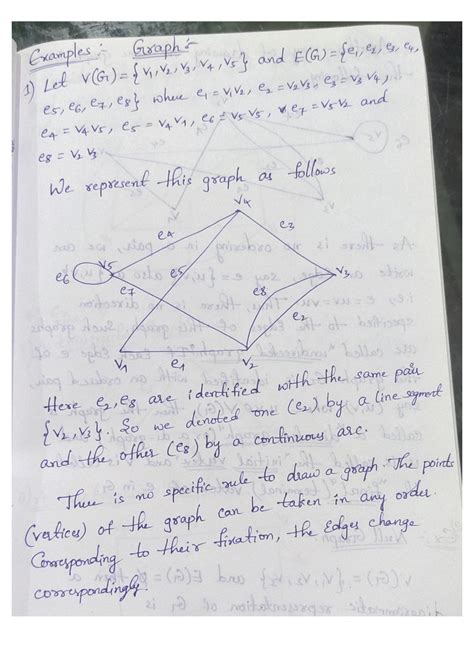 Examples :- Graph :-
1) Let V(G) = {V1, V2, V3, V4, V5} and E(G) = {e1, e2, e3, e4,
e5, e6, e7, e8} where e1 = V1V2, e2 = V2V3, e3 = V3V4,
e4 = V4V5, e5 = V4V1, e6 = V5V5, e7 = V5V2 and
e8 = V2V3
We represent this graph as follows
V4
e4 e3
V5
e6 e7 e5 e8 V3
e2
V1 e1 V2
Here e2, e8 are identified with the same pair
{V2, V3}. So we denoted one (e2) by a line segment
and the other (e8) by a continuous arc.
There is no specific rule to draw a graph. The points
(vertices) of the graph can be taken in any order.
Corresponding to their fixation, the Edges change
correspondingly.